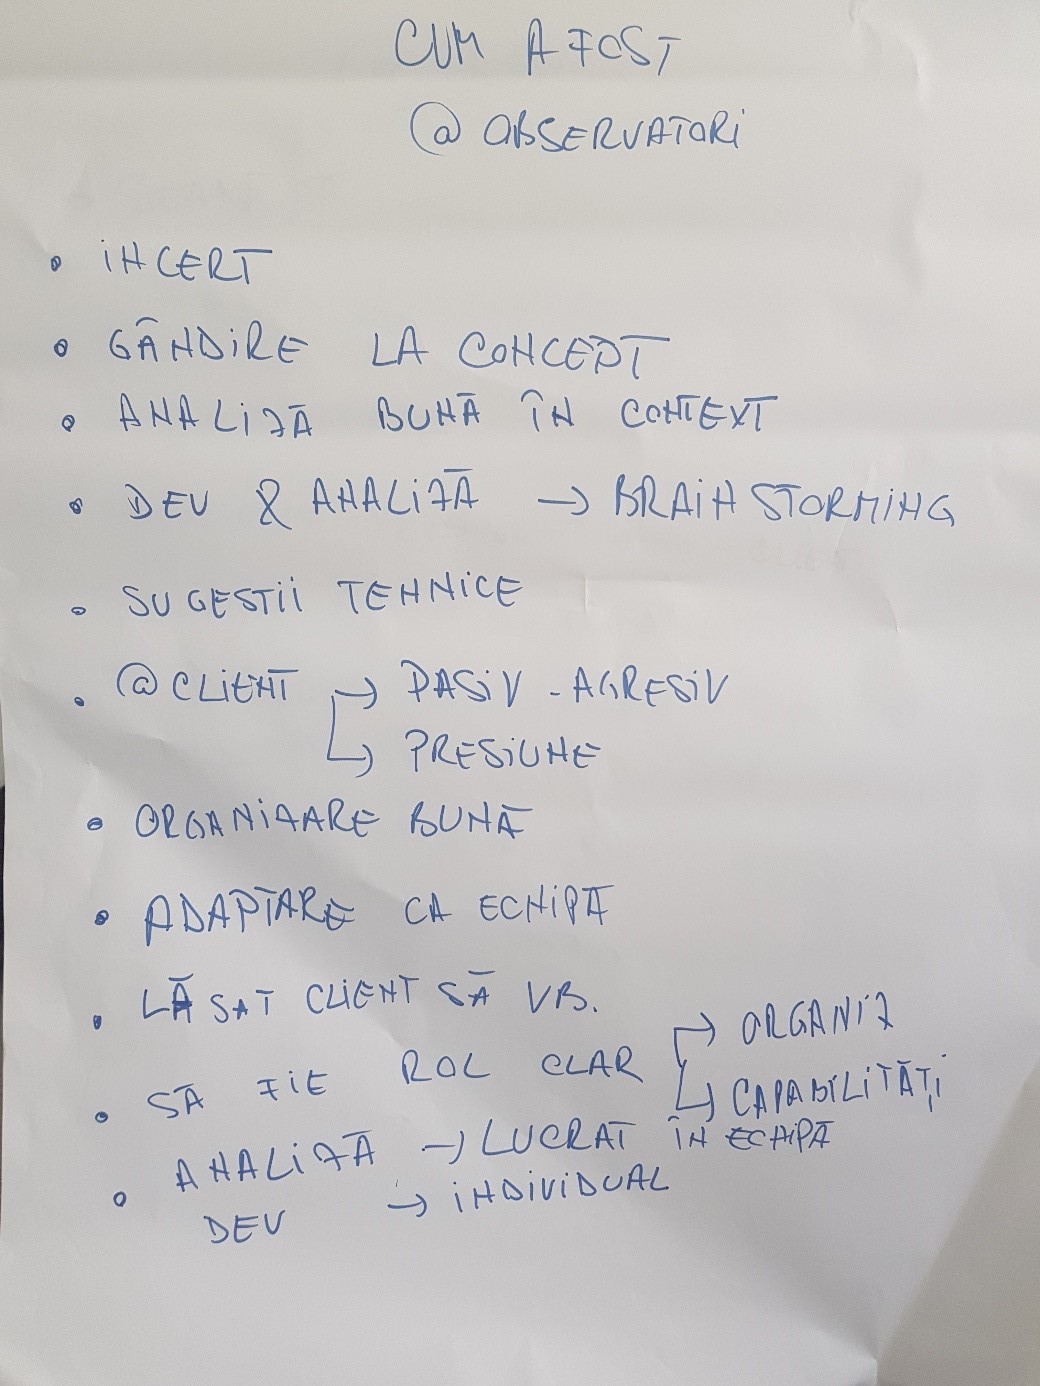 CUM A FOST
@ OBSERVATORI
• INCERT
• GÂNDIRE LA CONCEPT
• ANALIZĂ BUNĂ ÎN CONTEXT
• DEV & ANALIZĂ → BRAINSTORMING
• SUGESTII TEHNICE
• @CLIENT → PASIV - AGRESIV
↳ PRESIUNE
• ORGANIZARE BUNĂ
• ADAPTARE CA ECHIPĂ
• LĂSAT CLIENT SĂ VB.
• SĂ FIE ROL CLAR → ORGANIZ
↳ CAPABILITĂȚI
• ANALIZĂ → LUCRAT ÎN ECHIPĂ
DEV → INDIVIDUAL